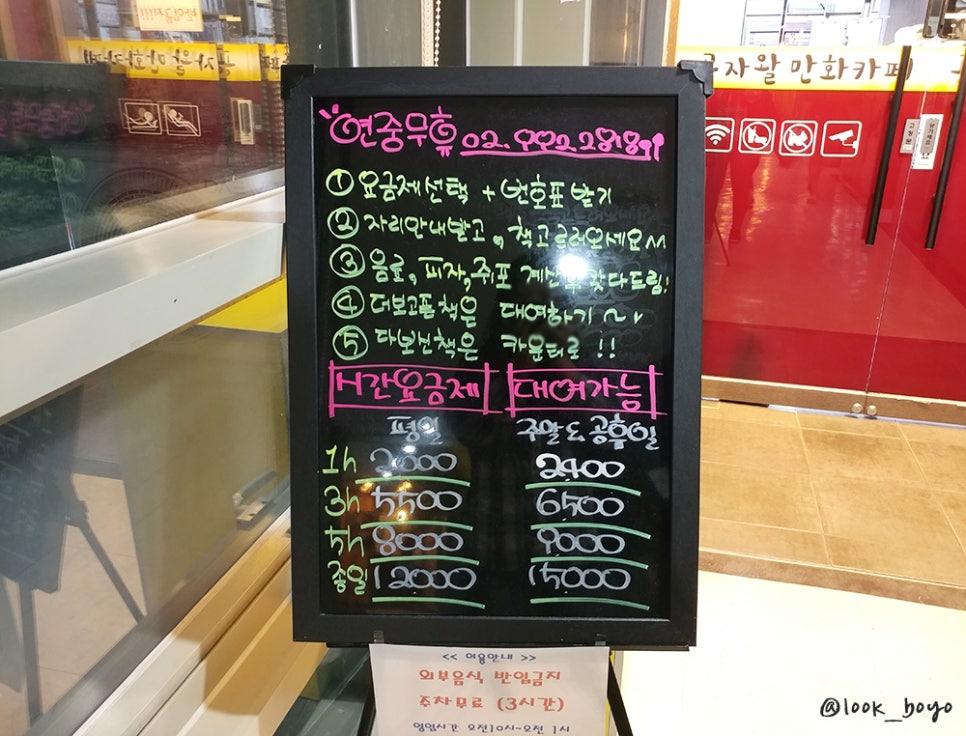 자왕 만화카페
연중무휴 02.992.2878
① 요금제 선택 + 번호표 받기
② 자리안내받고, 책고르러오세요^^
③ 음료, 피자, 쥐포 계산후 갖다드림!
④ 더보고픈 책은 대여하기~
⑤ 다보신책은 카운터로!!
시간요금제 대여가능
평일 주말 & 공휴일
1h 2000 2400
3h 5500 6500
5h 8000 9000
종일 12000 15000
<< 이용안내 >>
외부음식 반입금지
주차무료 (3시간)
영업시간 오전10시~오전 1시
@look_boyo